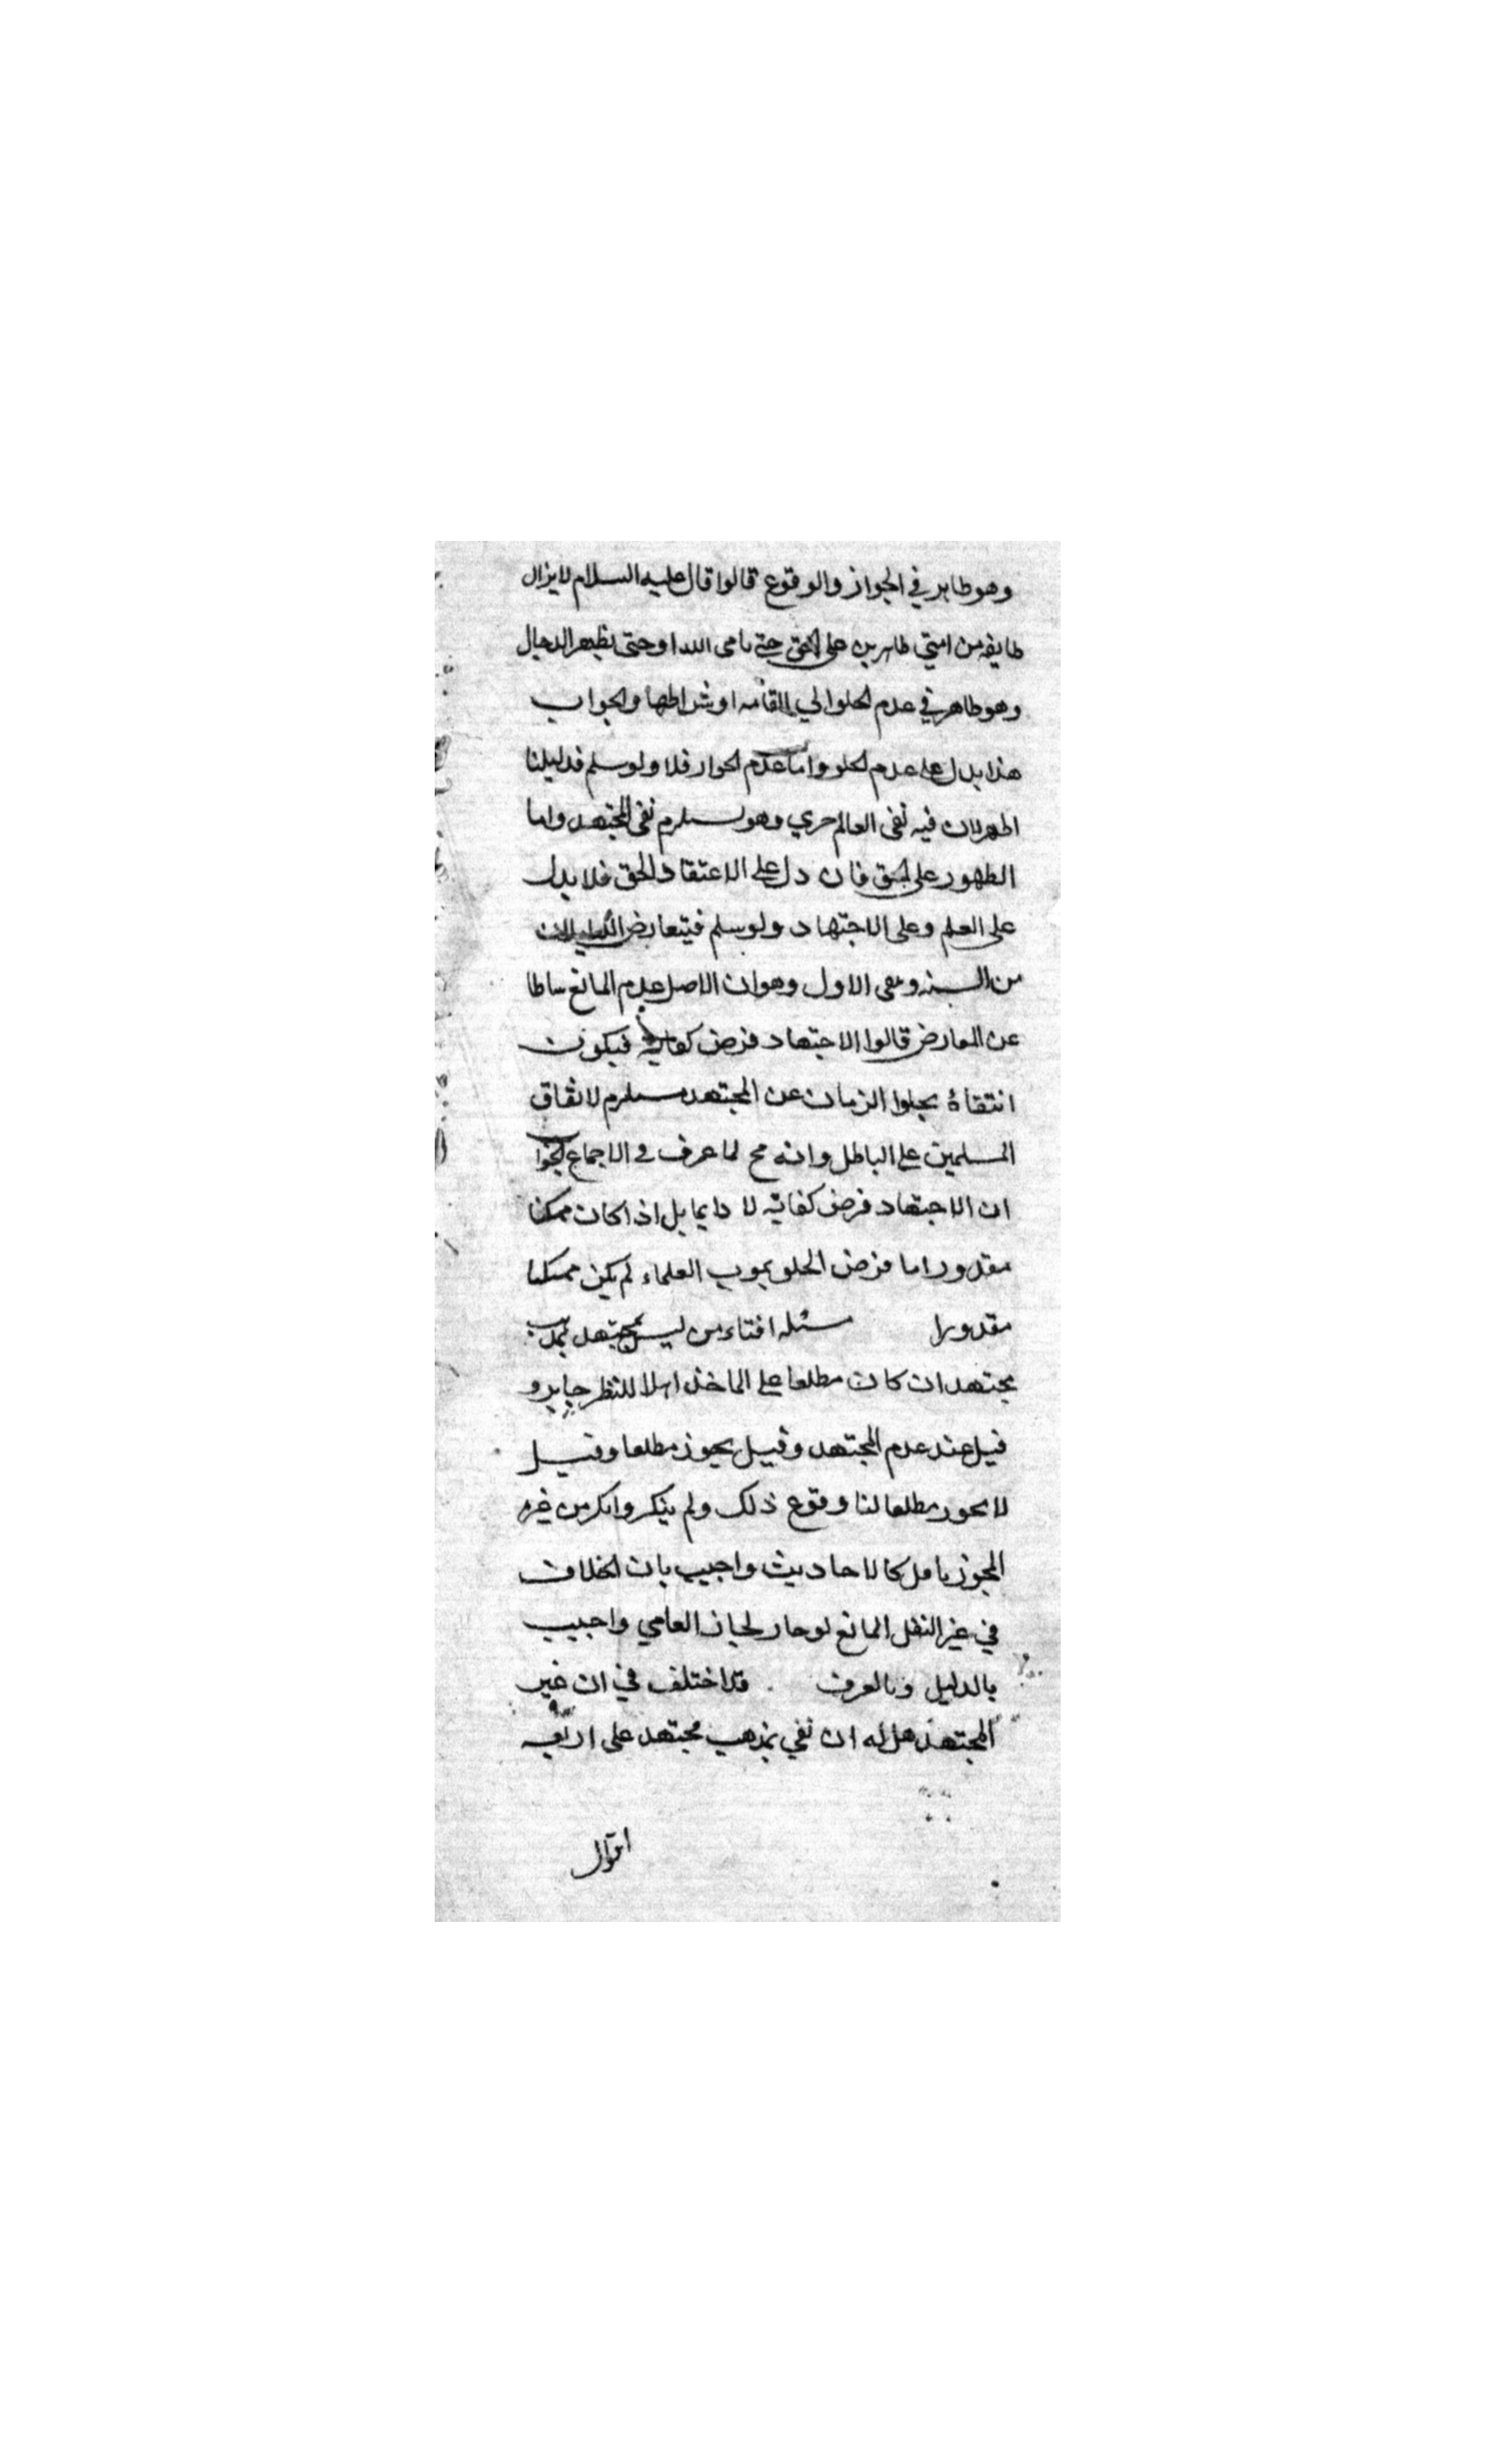 وهو ظاهر في الجواز والوقوع قالوا قال عليه السلام لا يزال
طايفة من امتي ظاهرين على الحق حتى ياتي امر الله او حتى يظهر الدجال
وهو ظاهر في عدم الخلو الي القيامة او اشراطها والجواب
هذا يدل على عدم الخلو واما عدم الجواز فلا ولو سلم فدليلنا
اظهر لان فيه نفى العالم صريحا وهو يستلزم نفى المجتهد واما
الظهور على الحق فان دل على الاعتقاد الحق فلا يدل
على العلم وعلى الاجتهاد ولو سلم فيتعارض الدليلان
من السنة وبقى الاول وهو ان الاصل عدم المانع سالما
عن المعارض قالوا الاجتهاد فرض كفاية فيكون
انتفاؤه بخلوا الزمان عن المجتهد مستلزم لاتفاق
المسلمين على الباطل وانه مح لما عرف في الاجماع الجواب
ان الاجتهاد فرض كفاية لا دايما بل اذا كان ممكنا
مقدورا ما فرض الخلو بموت العلماء لم يكن ممكنا
مقدورا مسئلة افتاء من ليس بمجتهد بمذهب
مجتهد ان كان مطلعا على الماخذ اهلا للنظر جايز و
قيل عند عدم المجتهد وقيل يجوز مطلقا وقيل
لا يجوز مطلقا لنا وقوع ذلك ولم ينكر وانكر من غيره
المجوز ناقل كالاحاديث واجيب بان الخلاف
في غير النقل المانع لو جاز لجاز للعامي واجيب
بالدليل وبالفرق قد اختلف في ان غير
المجتهد هل له ان يفتي بمذهب مجتهد على اربعة
اقوال